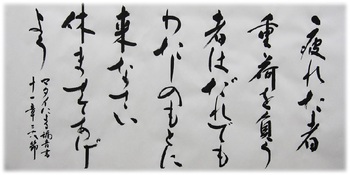 疲れた者
重荷を負う
者はだれでも
わたしのもとに
来なさい
休ませてあげ
よう
マタイによる福音書
十一章二八節